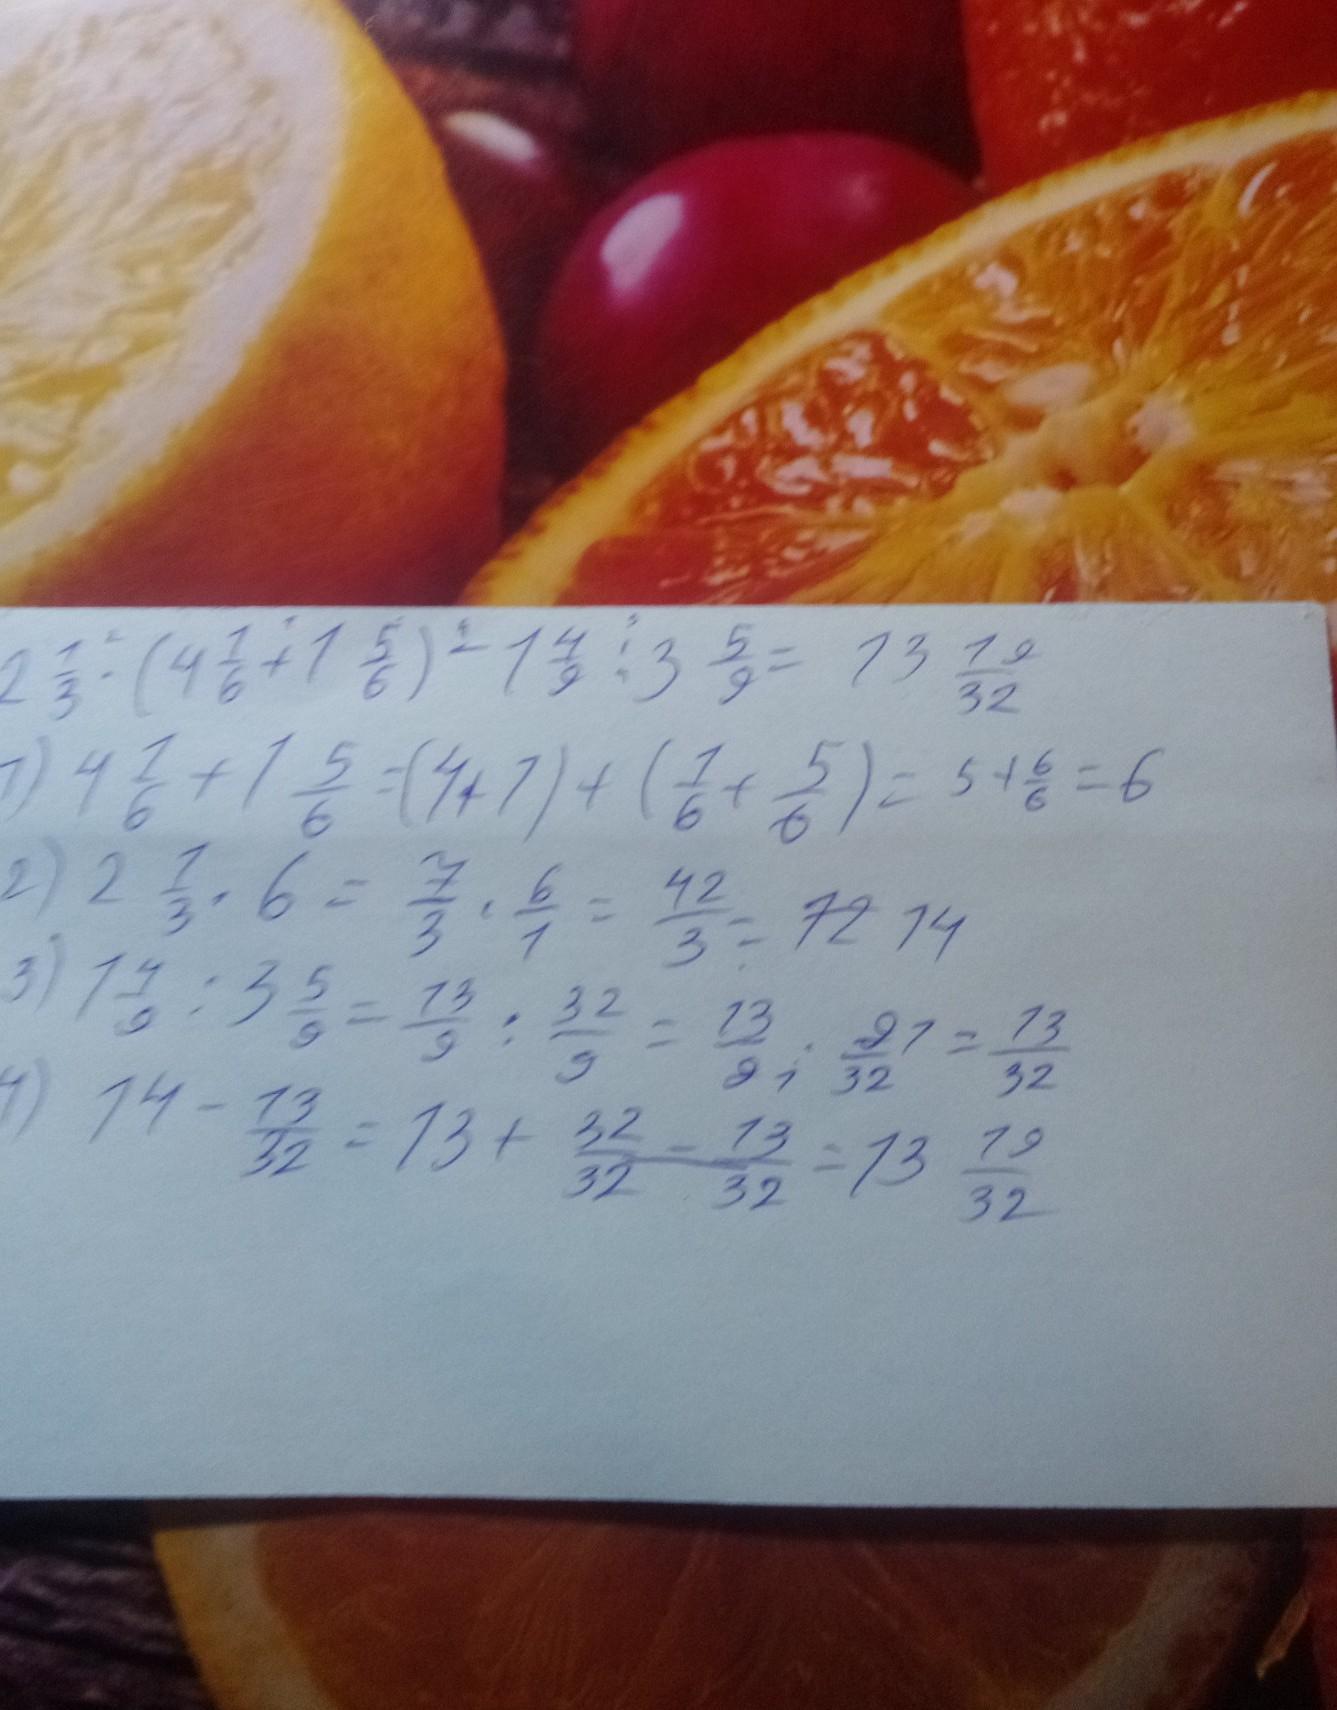 2 1/3 · (4 1/6 + 1 5/6) - 1 4/9 : 3 5/9 = 13 19/32
1) 4 1/6 + 1 5/6 = (4+1) + (1/6 + 5/6) = 5 + 6/6 = 6
2) 2 1/3 · 6 = 7/3 · 6/1 = 42/3 = 12 14
3) 1 4/9 : 3 5/9 = 13/9 : 32/9 = 13/9 1 · 9/32 1 = 13/32
4) 14 - 13/32 = 13 + 32/32 - 13/32 = 13 19/32